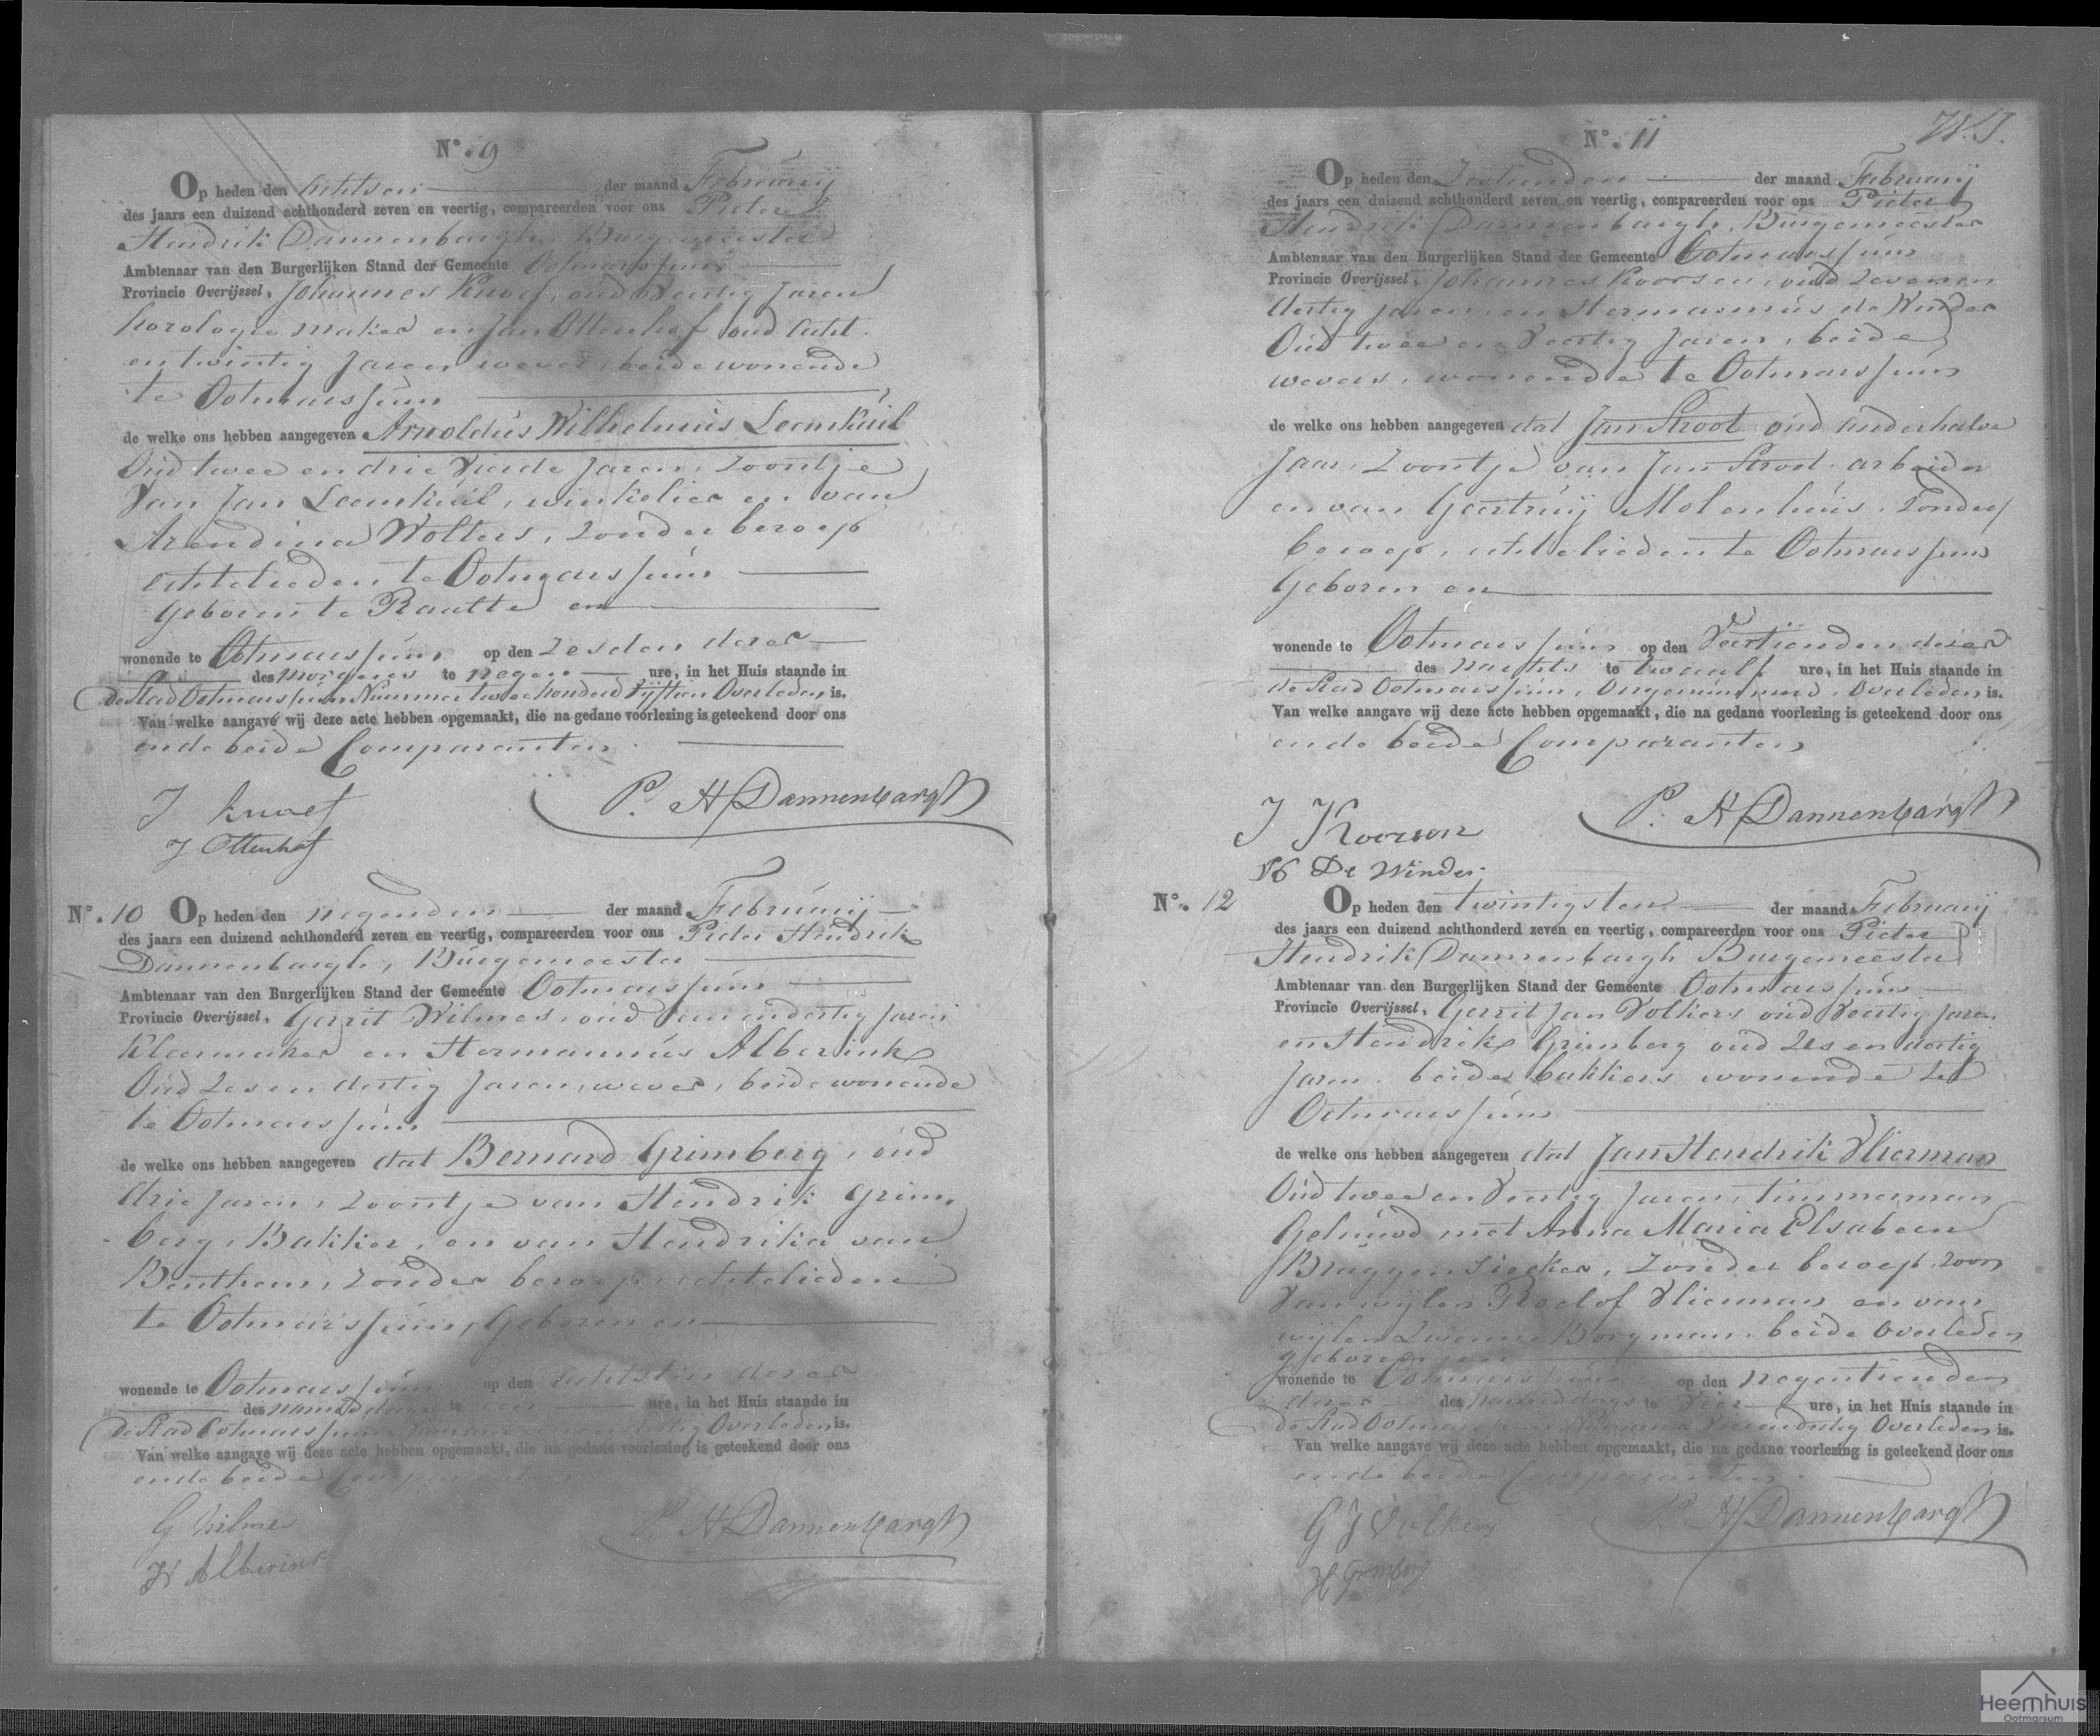 N.º 9
Op heden den achtsten der maand Februarij
des jaars een duizend achthonderd zeven en veertig, compareerden voor ons Pieter
Hendrik Dannenbargh, Burgemeester
Ambtenaar van den Burgerlijken Stand der Gemeente Ootmarssum
Provincie Overijssel, Johannes Knoef, oud Veertig Jaren
horologie maker en Jan Ottenhof oud acht
en twintig Jaren wever, beide wonende
te Ootmarssum
de welke ons hebben aangegeven Arnoldus Wilhelmus Leemkuil
Oud twee en drie Vierde Jaren, Zoontje
Van Jan Leemkuil, winkelier en van
Arendina Wolters, Zonder beroep
echtelieden te Ootmarssum
Geboren te Raalte en
wonende te Ootmarssum op den Zesden dezer
des morgens te negen ure, in het Huis staande in
de Stad Ootmarssum Nummer twee honderd Vijftien Overleden is.
Van welke aangave wij deze acte hebben opgemaakt, die na gedane voorlezing is geteekend door ons
en de beide Comparanten
J Knoef
P. H Dannenbargh
J Ottenhof
N.º 10 Op heden den negenden der maand Februarij
des jaars een duizend achthonderd zeven en veertig, compareerden voor ons Pieter Hendrik
Dannenbargh, Burgemeester
Ambtenaar van den Burgerlijken Stand der Gemeente Ootmarssum
Provincie Overijssel, Gerrit Wilmes, oud een en dertig Jaren
Kleermaker en Hermannus Alberink
Oud Zes en dertig Jaren, wever, beide wonende
te Ootmarssum
de welke ons hebben aangegeven dat Bernard Grimberg, oud
drie Jaren, Zoontje van Hendrik Grim-
berg, Bakker, en van Hendrika van
Benthem, Zonder beroep echtelieden
te Ootmarssum, Geboren en
wonende te Ootmarssum op den achtsten dezer
des namiddags te een ure, in het Huis staande in
de Stad Ootmarssum Nummer dertig Overleden is.
Van welke aangave wij deze acte hebben opgemaakt, die na gedane voorlezing is geteekend door ons
en de beide Comparanten
G Wilmes
P. H Dannenbargh
H Alberink
N.º 11
Op heden den Zestienden der maand Februarij
des jaars een duizend achthonderd zeven en veertig, compareerden voor ons Pieter
Hendrik Dannenbargh, Burgemeester
Ambtenaar van den Burgerlijken Stand der Gemeente Ootmarssum
Provincie Overijssel, Johannes Koorsen, oud Zeven en
dertig Jaren en Hermannus de Winder
Oud twee en Veertig Jaren, beide
wevers, wonende te Ootmarssum
de welke ons hebben aangegeven dat Jan Stroot oud anderhalve
Jaar, Zoontje van Jan Stroot arbeider
en van Geertruij Molenhuis, Zonder
beroep, echtelieden te Ootmarssum
Geboren en
wonende te Ootmarssum op den Veertienden dezer
des nachts te twaalf ure, in het Huis staande in
de Stad Ootmarssum, Ongenummerd, Overleden is.
Van welke aangave wij deze acte hebben opgemaakt, die na gedane voorlezing is geteekend door ons
en de beide Comparanten
J Koorsen
P. H Dannenbargh
H De Winder
N.º 12 Op heden den twintigsten der maand Februarij
des jaars een duizend achthonderd zeven en veertig, compareerden voor ons Pieter
Hendrik Dannenbargh Burgemeester
Ambtenaar van den Burgerlijken Stand der Gemeente Ootmarssum
Provincie Overijssel, Gerrit Jan Volkers oud Veertig Jaren
en Hendrik Grimberg oud Zes en dertig
Jaren, beide bakkers wonende te
Ootmarssum
de welke ons hebben aangegeven dat Jan Hendrik Vlierman
Oud twee en Veertig Jaren, timmerman
Gehuwd met Anna Maria Elsabeen
Bruggen Siecker, Zonder beroep, Zoon
Van wijlen Roelof Vlierman en van
wijlen Zwenne Borgman, beide Overleden
geboren en
wonende te Ootmarssum op den negentienden
dezer des namiddags te Vier ure, in het Huis staande in
de Stad Ootmarssum Nummer Vier en dertig Overleden is.
Van welke aangave wij deze acte hebben opgemaakt, die na gedane voorlezing is geteekend door ons
en de beide Comparanten
G J Volkers
P. H Dannenbargh
H Grimberg
Heemhuis
Ootmarsum